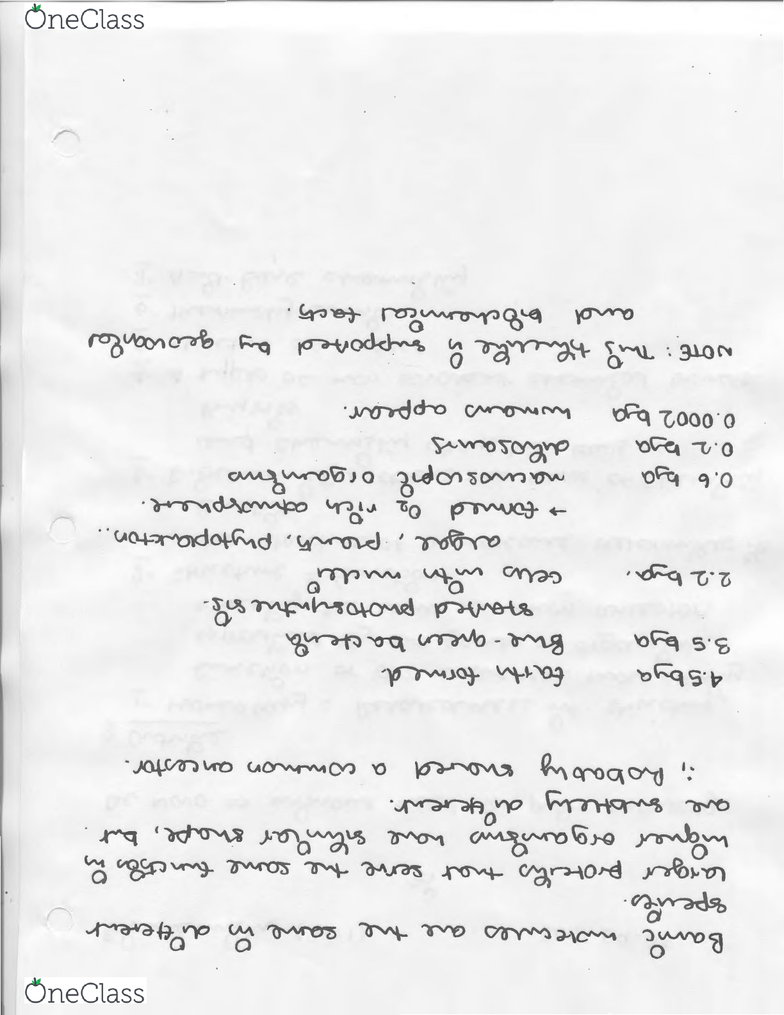 OneClass
Basic molecules are the same in different
species.
Larger proteins that serve the same function in
higher organisms have similar shape, but
are subtely different.
∴ Probably shared a common ancestor.
4.5 bya Earth formed.
3.5 bya Blue-green bacteria
started photosynthesis.
2.2 bya. cells with nuclei
algae, plants, phytoplancton..
→ formed O2 rich atmosphere.
0.6 bya macroscopic organisms
0.2 bya dinosaurs
0.0002 bya humans appear.
NOTE: This timeline is supported by
and biochemical facts.
OneClass